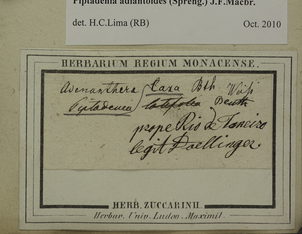 Piptadenia adiantoides (Spreng.) J.F.Macbr.
det. H.C.Lima (RB) Oct. 2010
HERBARIUM REGIUM MONACENSE.
Adenanthera rara Bth.
Piptadenia latifolia Benth
prope Rio de Janeiro
legit Doellinger.
HERB. ZUCCARINII.
Herbar. Univ. Ludov. Maximil.